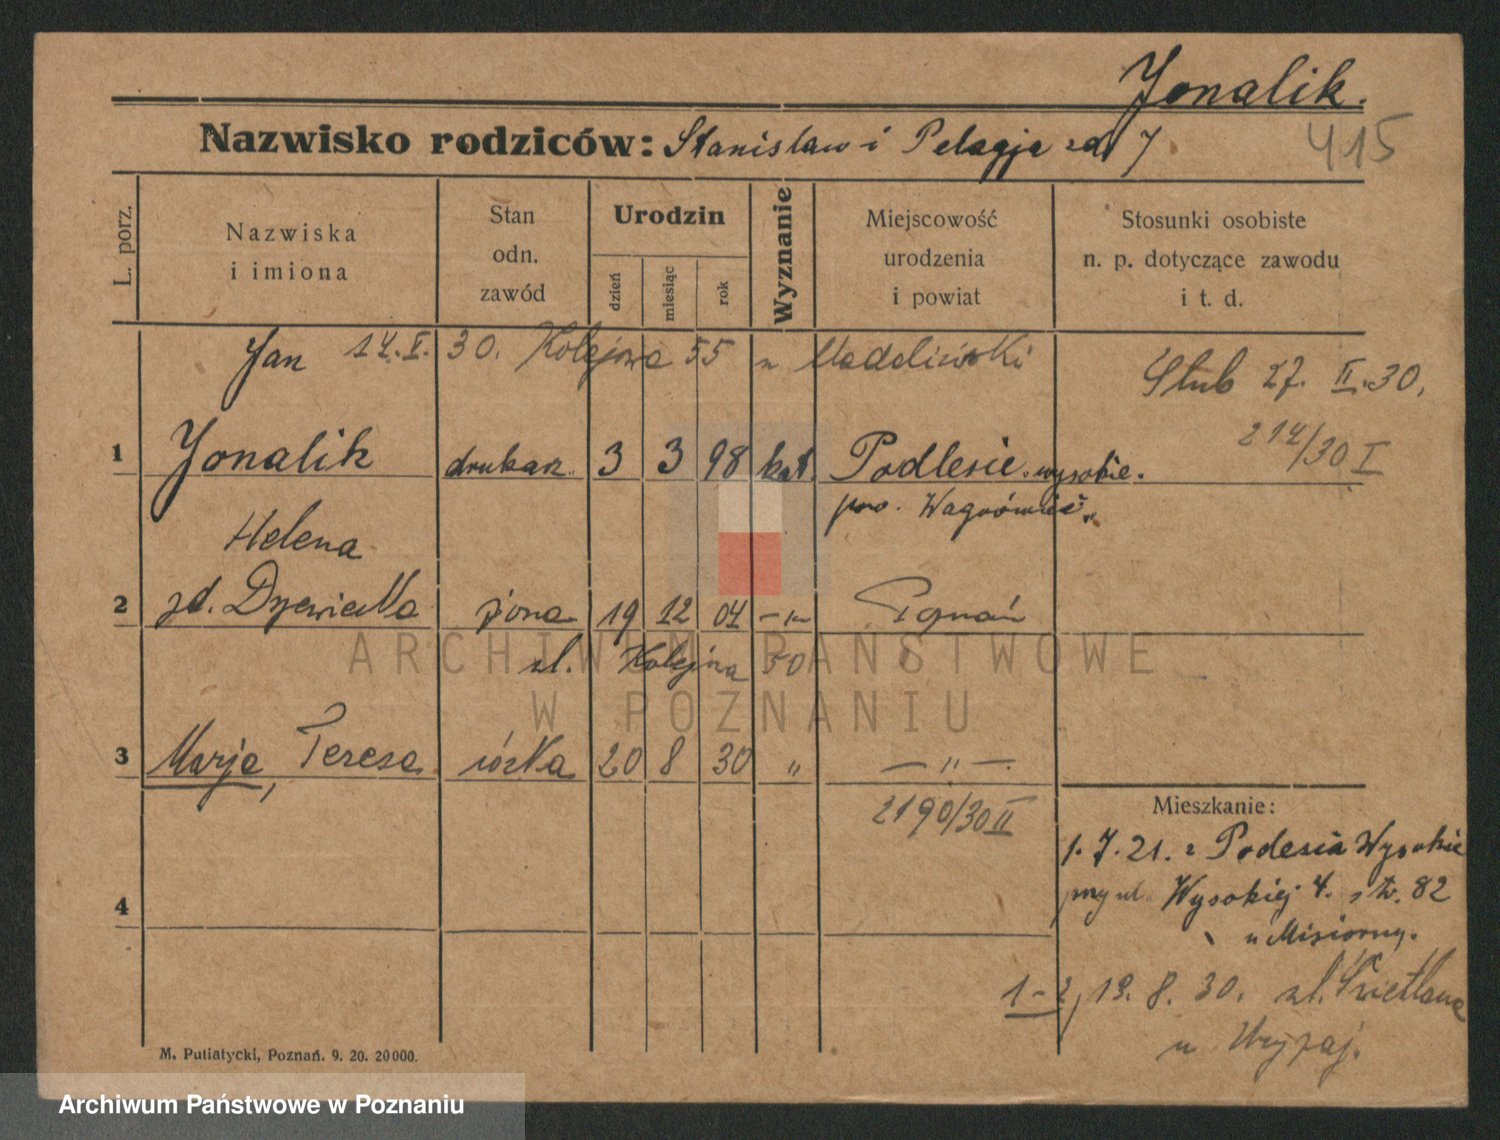 Jonalik.
Nazwisko rodziców: Stanisław i Pelagja zd J
415
L. porz.
Nazwiska
i imiona
Stan
odn.
zawód
Urodzin
dzień
miesiąc
rok
Wyznanie
Miejscowość
urodzenia
i powiat
Stosunki osobiste
n. p. dotyczące zawodu
i t. d.
Jan 14.I.30. Kolejowa 55 u
Ślub 27. II.30.
214/30 I
1 Jonalik drukarz. 3 3 98 kat. Podlesie wysokie.
pow. Wągrówiec
Helena
2 zd. żona 19 12 04 Poznań
ul. Kolejna 50
3 Marja, Teresa córka 20 8 30 " — " —
2190/30 II
4
Mieszkanie:
1.7.21. z Podlesia Wysokie
przy ul. Wysokiej 4. 82
u Misiorny.
1-2, 19. 8. 30. ul.
u
M. Putiatycki, Poznań. 9. 20. 20000.
ARCHIWUM PAŃSTWOWE
W POZNANIU
Archiwum Państwowe w Poznaniu